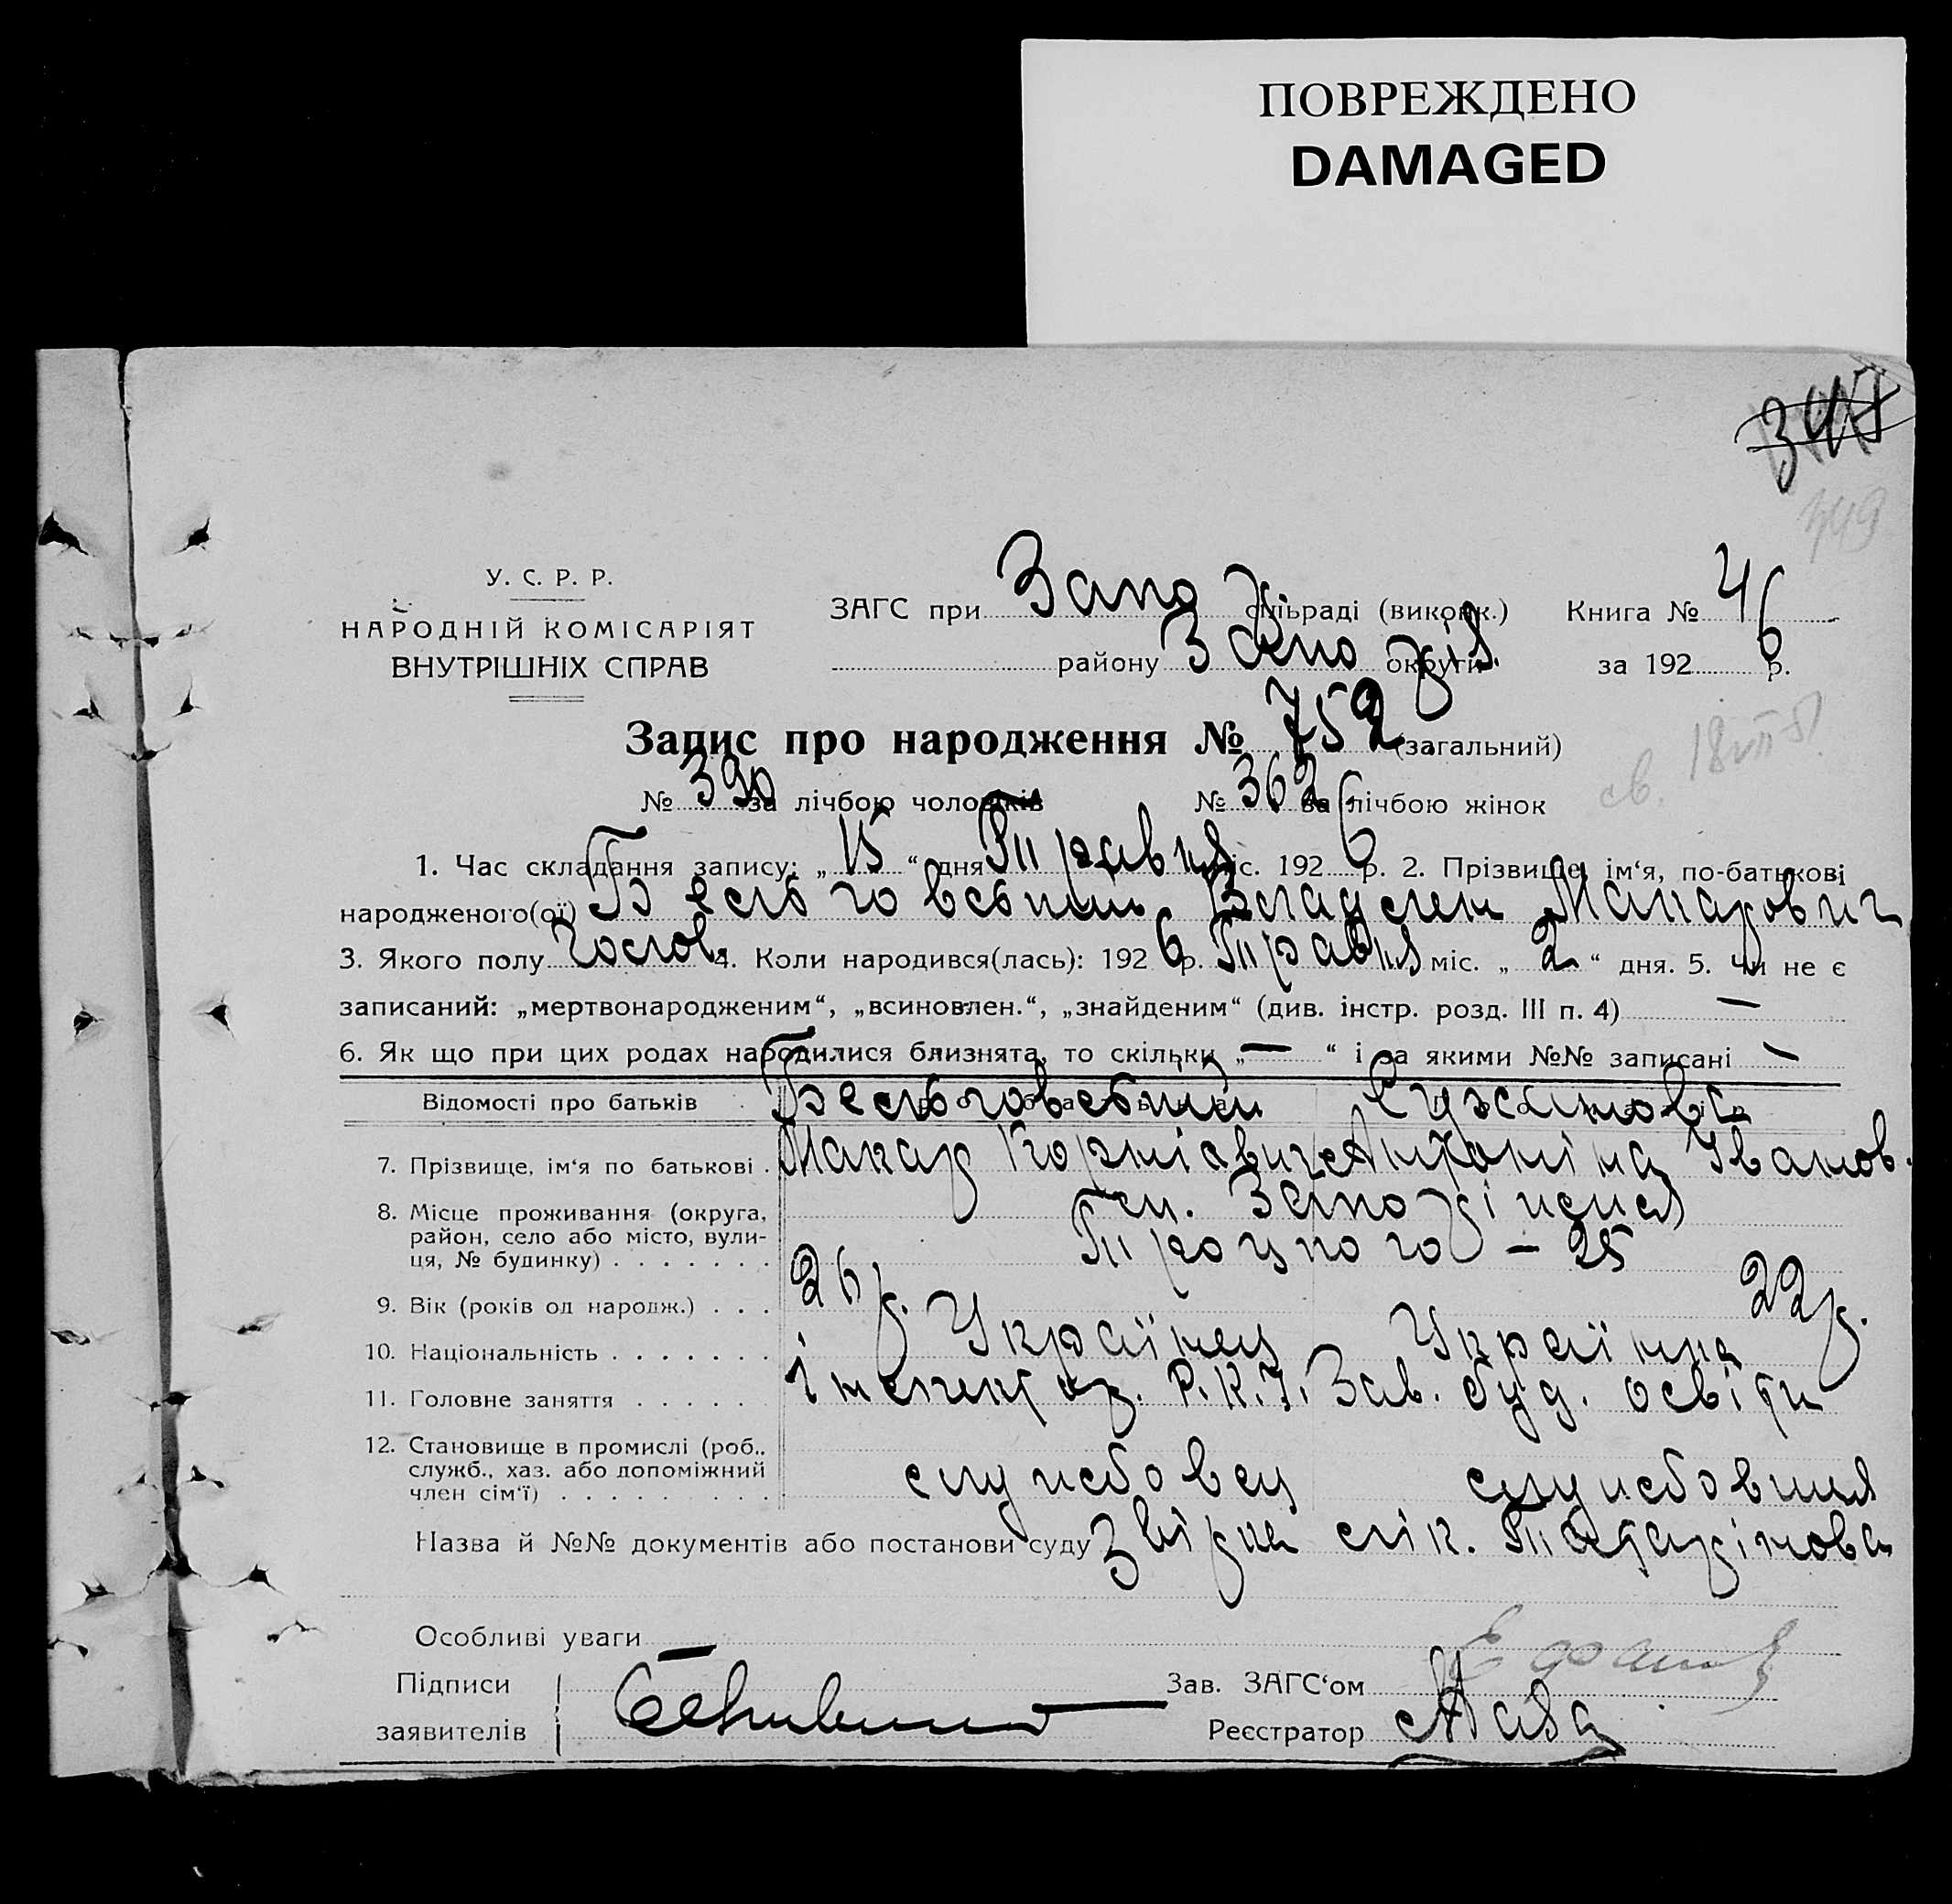 ПОВРЕЖДЕНО
DAMAGED
349
У. С. Р. Р.
НАРОДНІЙ КОМІСАРІЯТ
ВНУТРІШНІХ СПРАВ
ЗАГС при Запо сільраді (виконк.) Книга № 4
району Запоріз. округи за 1926 р.
Запис про народження № 752 (загальний)
№ 390 за лічбою чоловіків № 362 за лічбою жінок
св. 18/VII 51
1. Час складання запису: „ 15 “ дня Травня міс. 1926 р. 2. Прізвище, ім‘я, по-батькові
народженого(ої) Владелен Макарович
3. Якого полу Чолов. 4. Коли народився(лась): 1926 р. Травня міс. „ 2 “ дня. 5. Чи не є
записаний: „мертвонародженим“, „всиновлен.“, „знайденим“ (див. інстр. розд. III п. 4) —
6. Як що при цих родах народилися близнята, то скільки „ — “ і за якими №№ записані —
Відомості про батьків
7. Прізвище, ім‘я по батькові . Макар Корніевич Антоніна Іванов.
8. Місце проживання (округа, район, село або місто, вулиця, № будинку) . . . . . . . м. Запоріжжя
Троцького – 25
9. Вік (років од народж.) . . . 26 р. 22 р.
10. Національність . . . . . . . Українец Українка
11. Головне заняття . . . . . інспектор. Р.К.І. Зав. буд. освіти
12. Становище в промислі (роб., служб., хаз. або допоміжний член сім‘ї) . . . . . . . . . службовец службовиця
Назва й №№ документів або постанови суду Звірка лік. Татарінова
Особливі уваги —
Підписи
заявителів
Зав. ЗАГС‘ом
Реєстратор